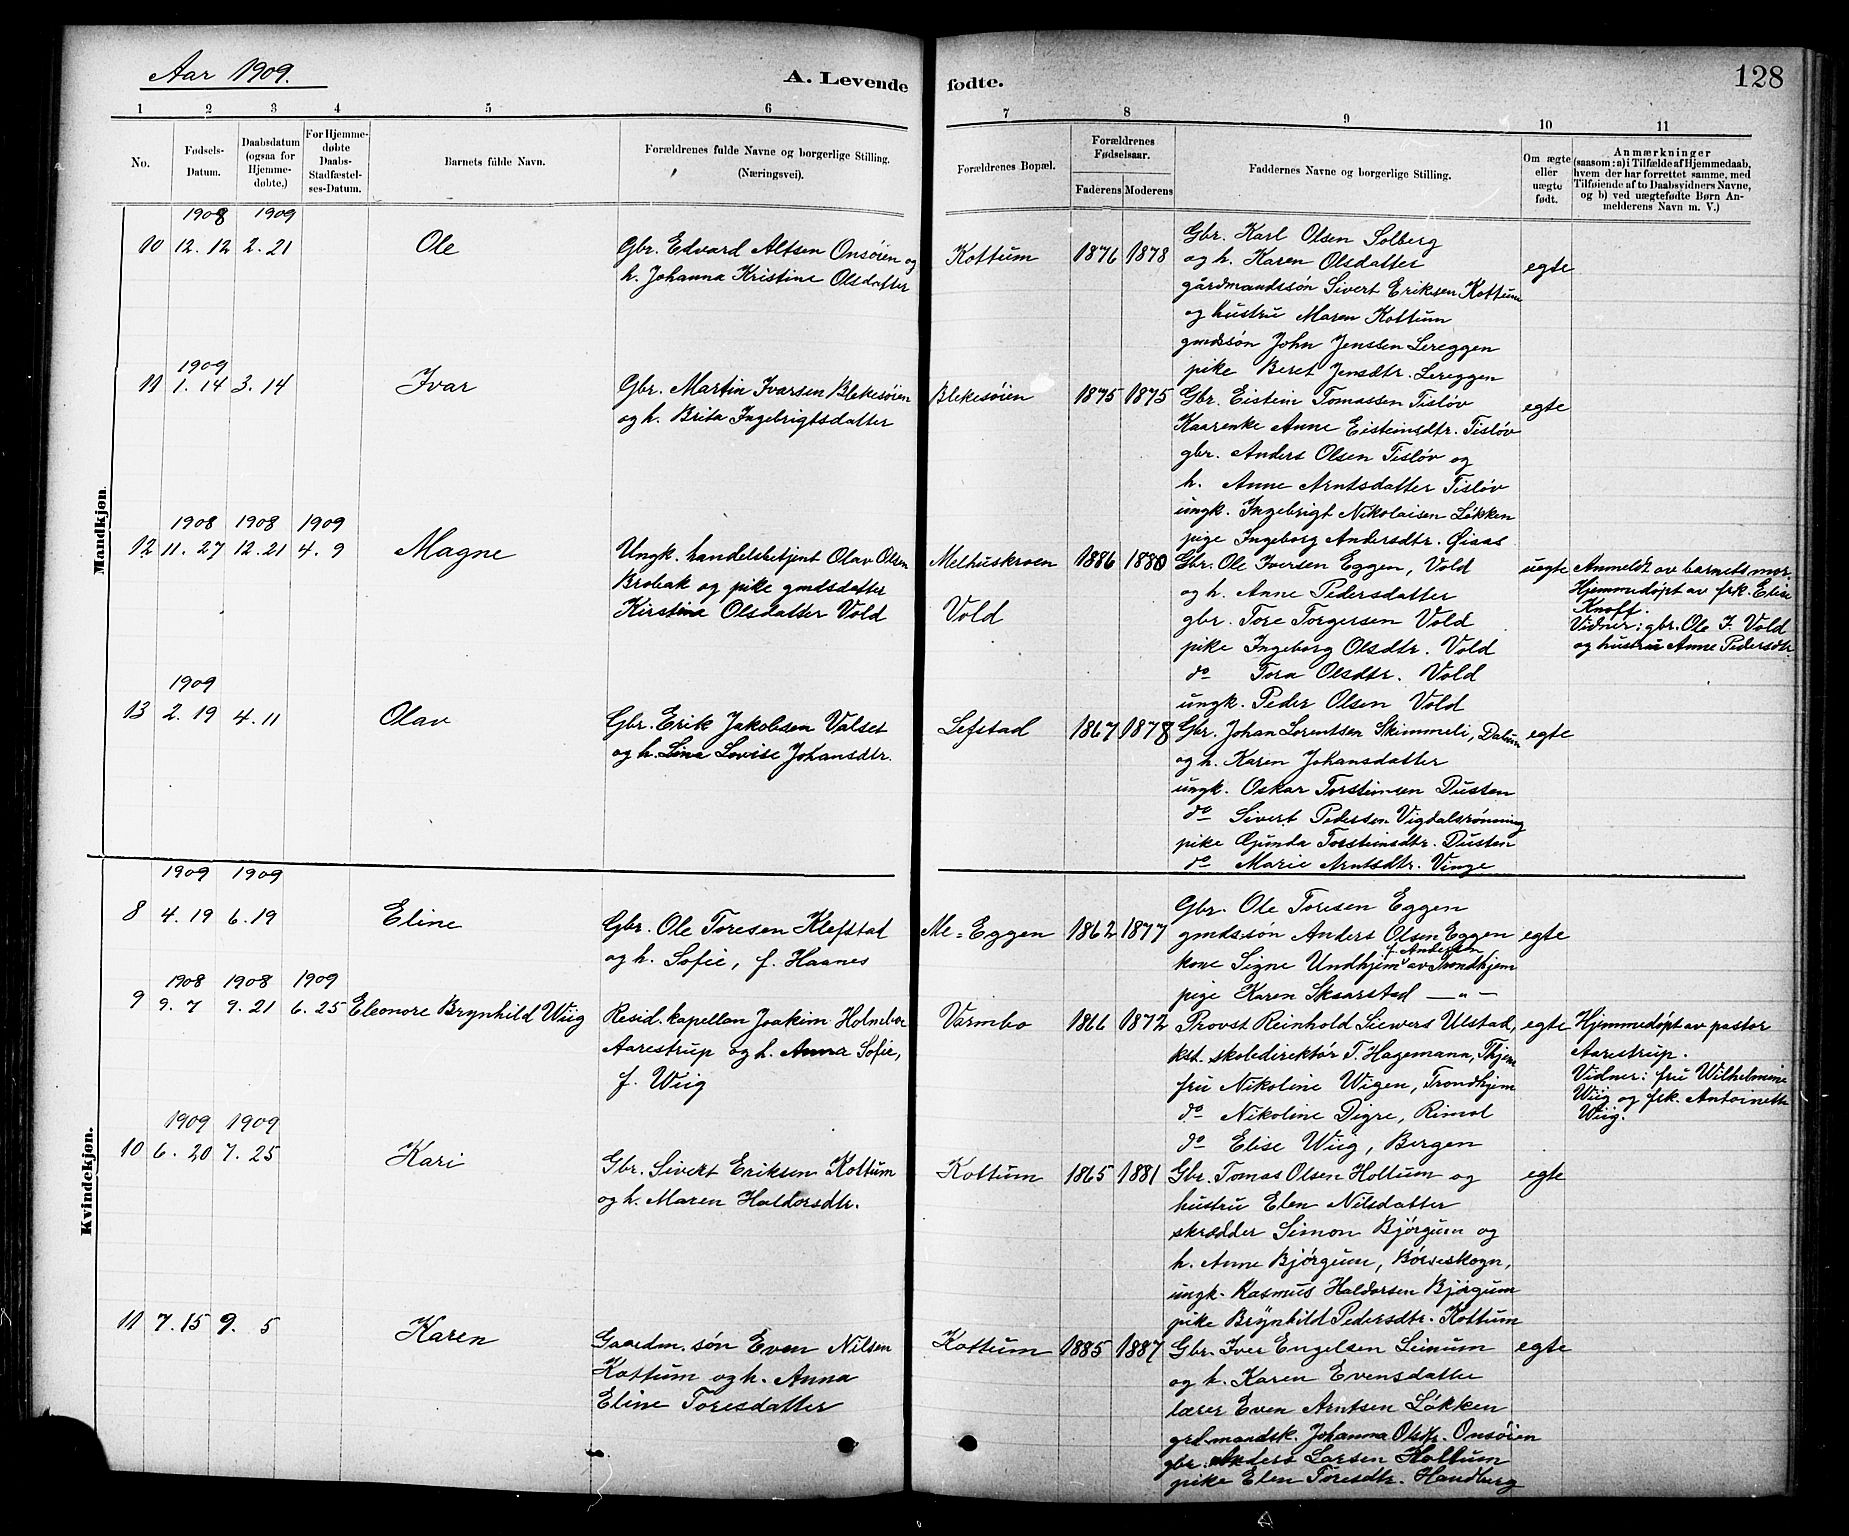 Aar 1909.
A. Levende fødte.
128
1 2 3 4 5 6 7 8 9 10 11
No.
Fødsels-
Datum.
Daabsdatum
(ogsaa for
Hjemme-
døbte.)
For Hjemme-
døbte
Daabs-
Stadfæstel-
ses-Datum.
Barnets fulde Navn.
Forældrenes fulde Navne og borgerlige Stilling.
(Næringsvei).
Forældrenes Bopæl.
Forældrenes
Fødselsaar.
Faderens Moderens
Faddernes Navne og borgerlige Stilling.
Om ægte
eller
uægte
født.
Anmærkninger
(saasom: a) i Tilfælde af Hjemmedaab,
hvem der har forrettet samme, med
Tilføiende af to Daabsvidners Navne,
og b) ved uægtefødte Børn An-
melderens Navn m. V.)
Mandkjøn.
1908 1909
10 12. 12 2. 21 Ole
Gbr. Edvard Altsen Onsøien og
h. Johanna Kristine Olsdatter
Kottum 1876 1878
Gbr. Karl Olsen Solberg
og h. Karen Olsdatter
gårdmandssøn Sivert Eriksen Kottum
og hustru Maren Kottum
gmdssøn John Jenssen Lereggen
pike Beret Jensdtr. Lereggen
egte
1909
11 1. 14 3. 14 Ivar
Gbr. Martin Ivarsen Blekesøien
og h. Brita Ingebrigtsdatter
Blekesøien 1875 1875
Gbr. Eistein Tomassen Tisløv
Kaarenke Anne Eisteinsdtr. Tisløv
gbr. Anders Olsen Tisløv og
h. Anne Arntsdatter Tisløv
ungk. Ingebrigt Nikolaisen Løkken
pige Ingeborg Andersdtr. Øiaas
egte
1908 1908 1909
12 11. 27 12. 21 4. 9 Magne
Ungk. handelsbetjent Olav Olsen
Brobak og pike gmdsdatter
Kirstine Olsdatter Vold
Melhuskroen 1886 1880
Vold
Gbr. Ole Iversen Eggen, Vold
og h. Anne Pedersdatter
gbr. Tore Torgersen Vold
pike Ingeborg Olsdtr. Vold
do Tora Olsdtr. Vold
ungk. Peder Olsen Vold
uegte
Anmeldt av barnets mor.
Hjemmedøpt av frk. Elise
Knoff.
Vidner: gbr. Ole I. Vold
og hustru Anne Pedersdtr
1909
13 2. 19 4. 11 Olav
Gbr. Erik Jakobsen Valset
og h. Lina Lovise Johansdtr.
Lefstad 1867 1878
Gbr. Johan Lorentsen Skimmeli, Dalum
og h. Karen Johansdatter
ungk. Oskar Torsteinsen Dusten
do Sivert Pedersen Vigdalsrønning
pike Gunda Torsteinsdtr. Dusten
do Marie Arntsdtr. Vinge
egte
Kvindekjøn.
1909 1909
8 4. 19 6. 19 Eline
Gbr. Ole Toresen Klefstad
og h. Sofie, f. Haanes
Me=Eggen 1862 1877
Gbr. Ole Toresen Eggen
gmdssøn Anders Olsen Eggen
f. Andersen
kone Signe Undhjem av Trondhjem
pige Karen Skaarstad —"—
egte
1908 1908 1909
9 9. 7 9. 21 6. 25 Eleonore Brynhild Wiig
Resid. kapellan Joakim Holmboe
Aarestrup og h. Anna Sofie,
f. Wiig
Varmbo 1866 1872
Provst Reinhold Siewers Ulstad,
kst. skoledirektør T. Hagemann, Thjem
fru Nikoline Wigen, Trondhjem
do Nikoline Digre, Rimol
do Elise Wiig, Bergen
egte
Hjemmedøpt av pastor
Aarestrup.
Vidner: fru Wilhelmine
Wiig og frk. Antornette
Wiig.
1909 1909
10 6. 20 7. 25 Kari
Gbr. Sivert Eriksen Kottum
og h. Maren Haldorsdtr.
Kottum 1865 1881
Gbr. Tomas Olsen Holtum og
hustru Elen Nilsdatter
skrædder Simon Bjørgum og
h. Anne Bjørgum, Børseskogn,
ungk. Rasmus Haldorsen Bjørgum
pike Brynhild Pedersdtr. Kottum
egte
11 7. 15 9. 5 Karen
Gaardm. søn Even Nilsen
Kottum og h. Anna
Eline Toresdatter
Kottum 1885 1887
Gbr. Iver Engelsen Leinum
og h. Karen Evensdatter
lærer Even Arntsen Løkken
grdmandsk. Johanna Olsdtr. Onsøien
gbr. Anders Larsen Kottum
pike Elen Toresdtr. Handberg
egte